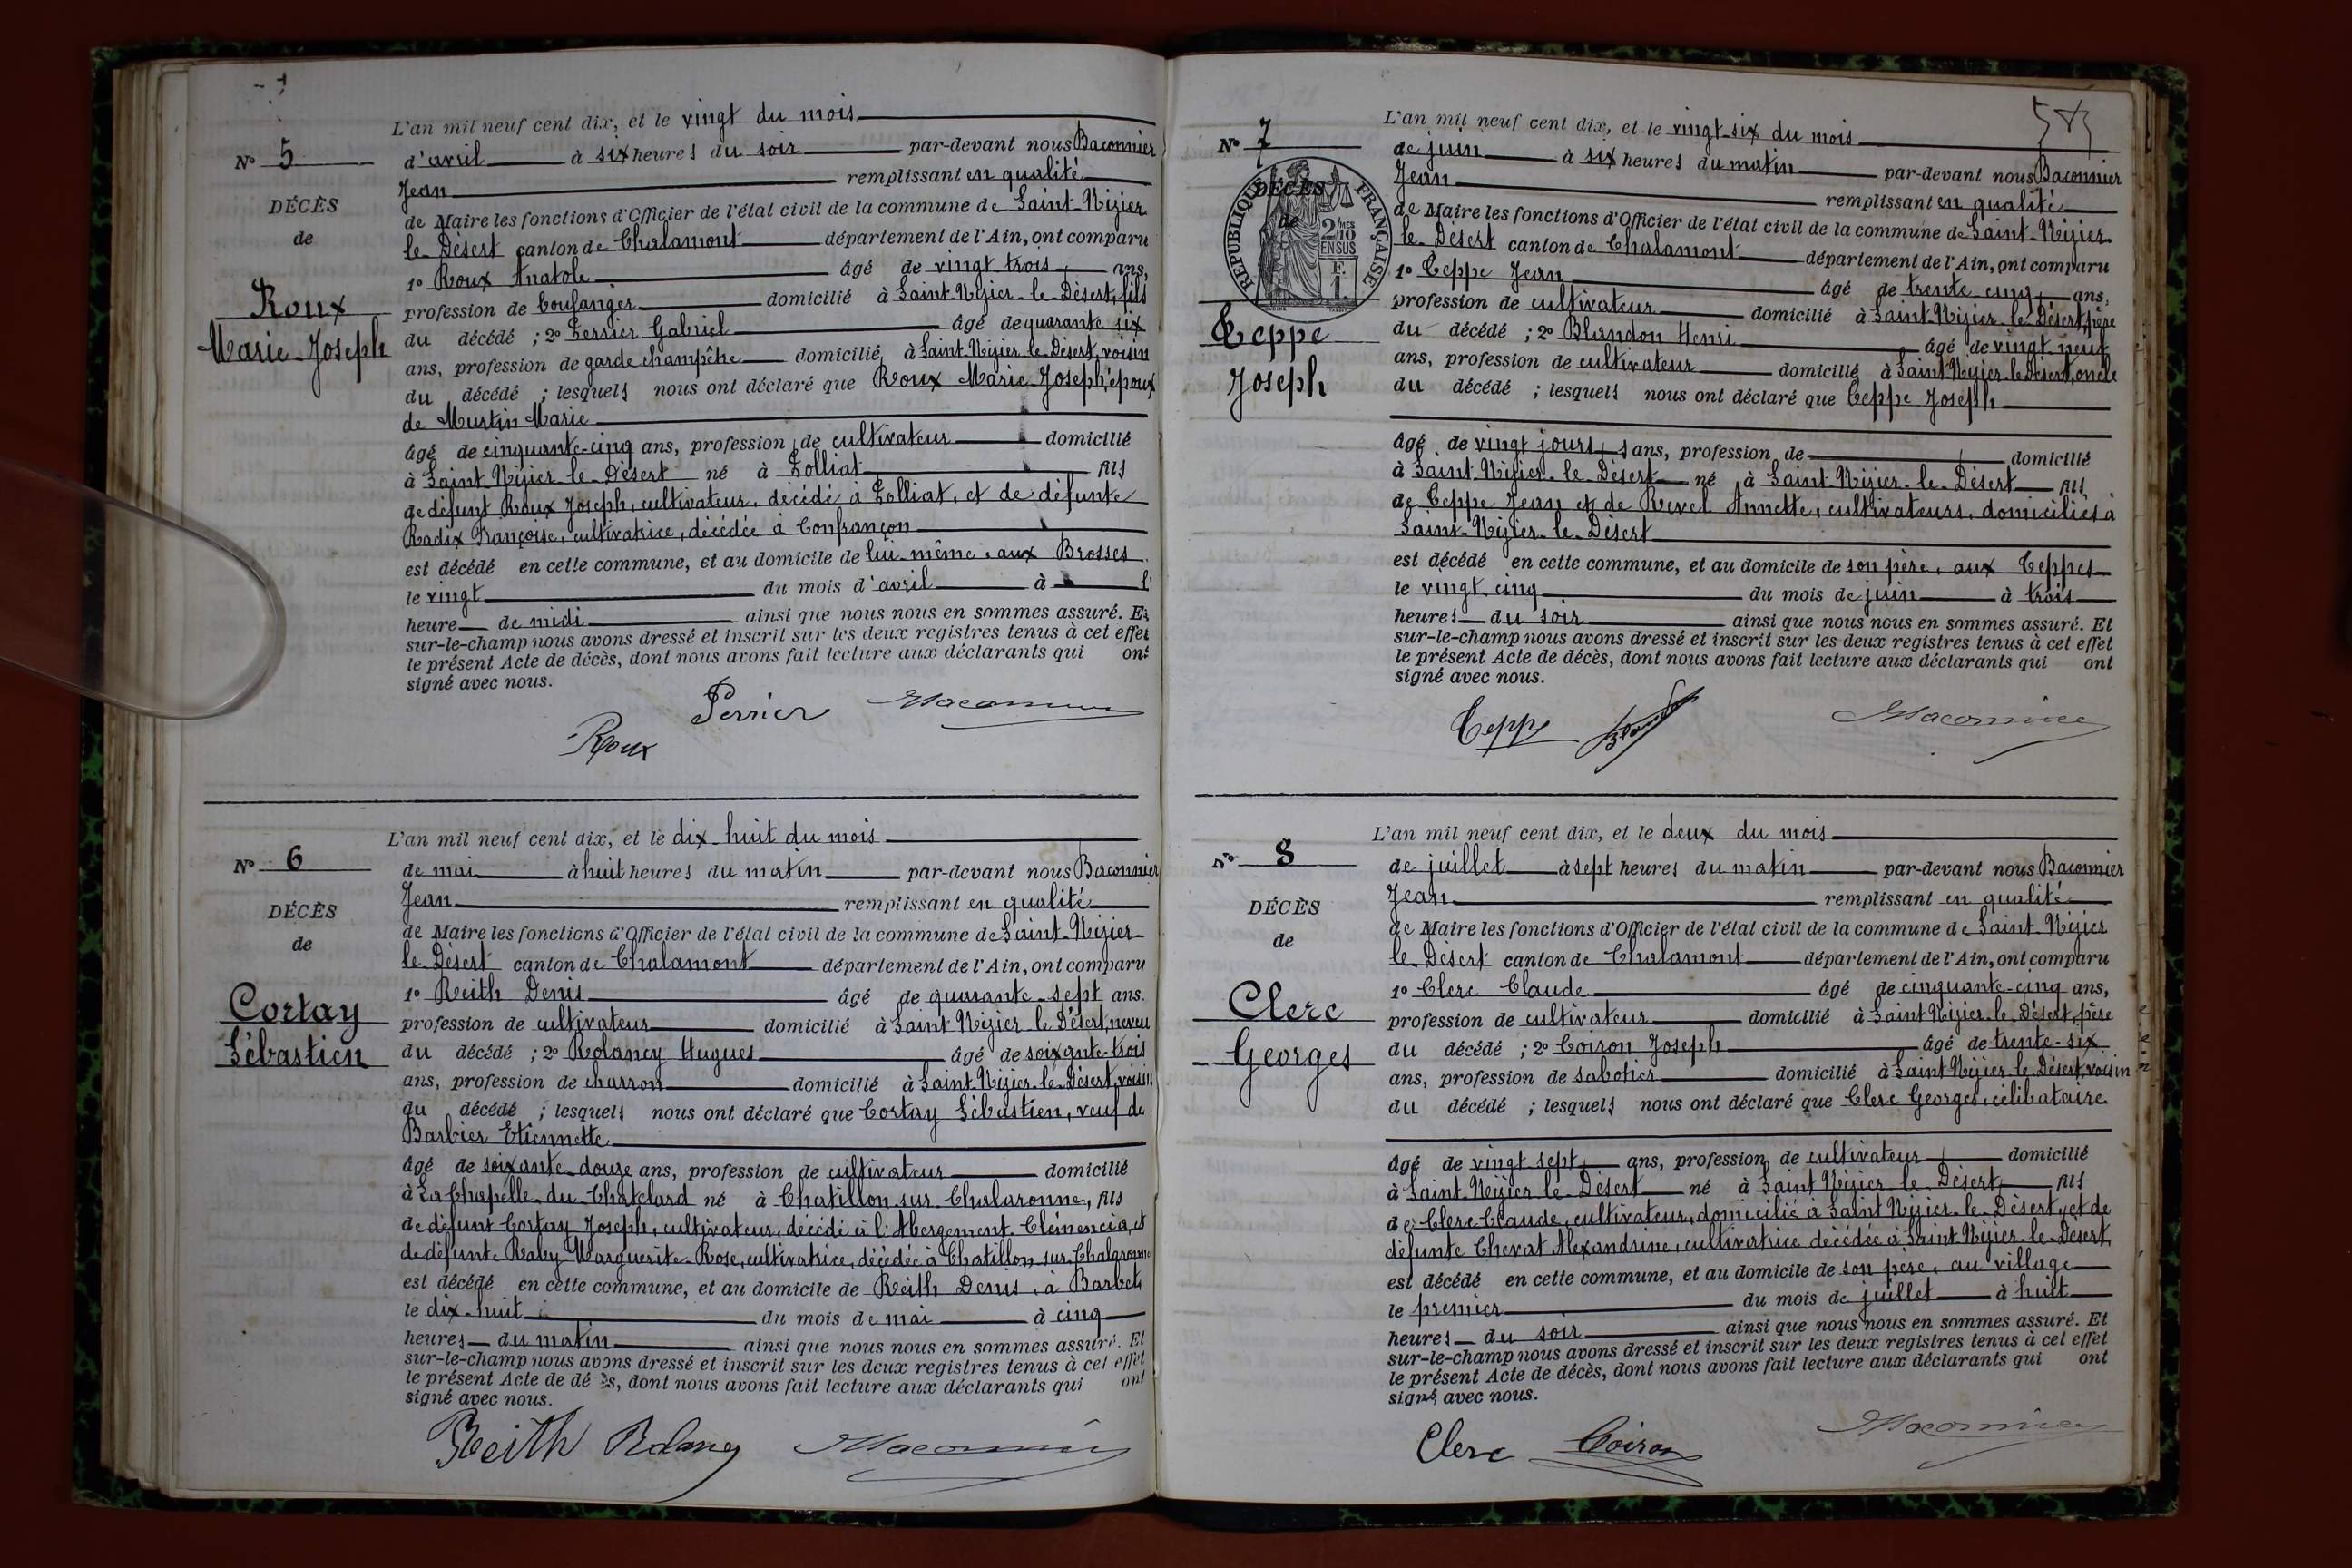 N° 5
DÉCÈS
de
Roux
Marie-Joseph
L'an mil neuf cent dix, et le vingt du mois
d'avril à six heures du soir par-devant nous Baconnier
Jean remplissant en qualité
de Maire les fonctions d'Officier de l'état civil de la commune de Saint-Nizier
le-Désert canton de Chalamont département de l'Ain, ont comparu
1° Roux Anatole âgé de vingt trois ans,
profession de boulanger domicilié à Saint-Nizier-le-Désert, fils
du décédé ; 2° Perrier Gabriel âgé de quarante six
ans, profession de garde champêtre domicilié à Saint-Nizier-le-Désert, voisin
du décédé ; lesquels nous ont déclaré que Roux Marie-Joseph, époux
de Mustin Marie
âgé de cinquante-cinq ans, profession de cultivateur domicilié
à Saint Nizier-le-Désert né à Polliat fils
de défunt Roux Joseph, cultivateur, décédé à Polliat, et de défunte
Radix Françoise, cultivatrice, décédée à Confrançon
est décédé en cette commune, et au domicile de lui-même, aux Brosses
le vingt du mois d'avril à l'
heure de midi ainsi que nous nous en sommes assuré. Et
sur-le-champ nous avons dressé et inscrit sur les deux registres tenus à cet effet
le présent Acte de décès, dont nous avons fait lecture aux déclarants qui ont
signé avec nous.
Perrier Baconnier
Roux
N° 6
DÉCÈS
de
Cortay
Sébastien
L'an mil neuf cent dix, et le dix-huit du mois
de mai à huit heures du matin par-devant nous Baconnier
Jean remplissant en qualité
de Maire les fonctions d'Officier de l'état civil de la commune de Saint-Nizier-
le-Désert canton de Chalamont département de l'Ain, ont comparu
1° Reith Denis âgé de quarante-sept ans.
profession de cultivateur domicilié à Saint Nizier-le-Désert, neveu
du décédé ; 2° Rolancy Hugues âgé de soixante-trois
ans, profession de charron domicilié à Saint-Nizier-le-Désert, voisin
du décédé ; lesquels nous ont déclaré que Cortay Sébastien, veuf de
Barbier Etiennette
âgé de soixante-douze ans, profession de cultivateur domicilié
à La Chapelle-du-Chatelard né à Chatillon-sur-Chalaronne, fils
de défunt Cortay Joseph, cultivateur, décédé à l'Abergement-Clémencia, et
de défunte Raby Marguerite-Rose, cultivatrice, décédée à Chatillon-sur-Chalaronne
est décédé en cette commune, et au domicile de Reith Denis, à Barbet
le dix-huit du mois de mai à cinq
heures du matin ainsi que nous nous en sommes assuré. Et
sur-le-champ nous avons dressé et inscrit sur les deux registres tenus à cet effet
le présent Acte de décès, dont nous avons fait lecture aux déclarants qui ont
signé avec nous.
Reith Rolancy Baconnier
N° 7
DÉCÈS
de
RÉPUBLIQUE FRANÇAISE
2/10 MES
EN SUS
F.
1
Teppe
Joseph
L'an mil neuf cent dix, et le vingt-six du mois
de juin à six heures du matin par-devant nous Baconnier
Jean remplissant en qualité
de Maire les fonctions d'Officier de l'état civil de la commune de Saint-Nizier-
le-Désert canton de Chalamont département de l'Ain, ont comparu
1° Teppe Jean âgé de trente cinq ans,
profession de cultivateur domicilié à Saint-Nizier-le-Désert, père
du décédé ; 2° Blandon Henri âgé de vingt neuf
ans, profession de cultivateur domicilié à Saint-Nizier-le-Désert, oncle
du décédé ; lesquels nous ont déclaré que Teppe Joseph
âgé de vingt jours ans, profession de domicilié
à Saint-Nizier-le-Désert né à Saint-Nizier-le-Désert fils
de Teppe Jean et de Revel Annette, cultivateurs, domiciliés à
Saint-Nizier-le-Désert
est décédé en cette commune, et au domicile de son père, aux Teppes
le vingt-cinq du mois de juin à trois
heures du soir ainsi que nous nous en sommes assuré. Et
sur-le-champ nous avons dressé et inscrit sur les deux registres tenus à cet effet
le présent Acte de décès, dont nous avons fait lecture aux déclarants qui ont
signé avec nous.
Teppe Baconnier
N° 8
DÉCÈS
de
Clerc
Georges
L'an mil neuf cent dix, et le deux du mois
de juillet à sept heures du matin par-devant nous Baconnier
Jean remplissant en qualité
de Maire les fonctions d'Officier de l'état civil de la commune de Saint-Nizier
le-Désert canton de Chalamont département de l'Ain, ont comparu
1° Clerc Claude âgé de cinquante-cinq ans,
profession de cultivateur domicilié à Saint Nizier-le-Désert, père
du décédé ; 2° Coiron Joseph âgé de trente-six
ans, profession de sabotier domicilié à Saint Nizier-le-Désert, voisin
du décédé ; lesquels nous ont déclaré que Clerc Georges, célibataire
âgé de vingt sept ans, profession de cultivateur domicilié
à Saint-Nizier-le-Désert né à Saint Nizier-le-Désert fils
de Clerc Claude, cultivateur, domicilié à Saint Nizier-le-Désert, et de
défunte Chevat Alexandrine, cultivatrice décédée à Saint Nizier-le-Désert,
est décédé en cette commune, et au domicile de son père, au village
le premier du mois de juillet à huit
heures du soir ainsi que nous nous en sommes assuré. Et
sur-le-champ nous avons dressé et inscrit sur les deux registres tenus à cet effet
le présent Acte de décès, dont nous avons fait lecture aux déclarants qui ont
signé avec nous.
Clerc Coiron Baconnier